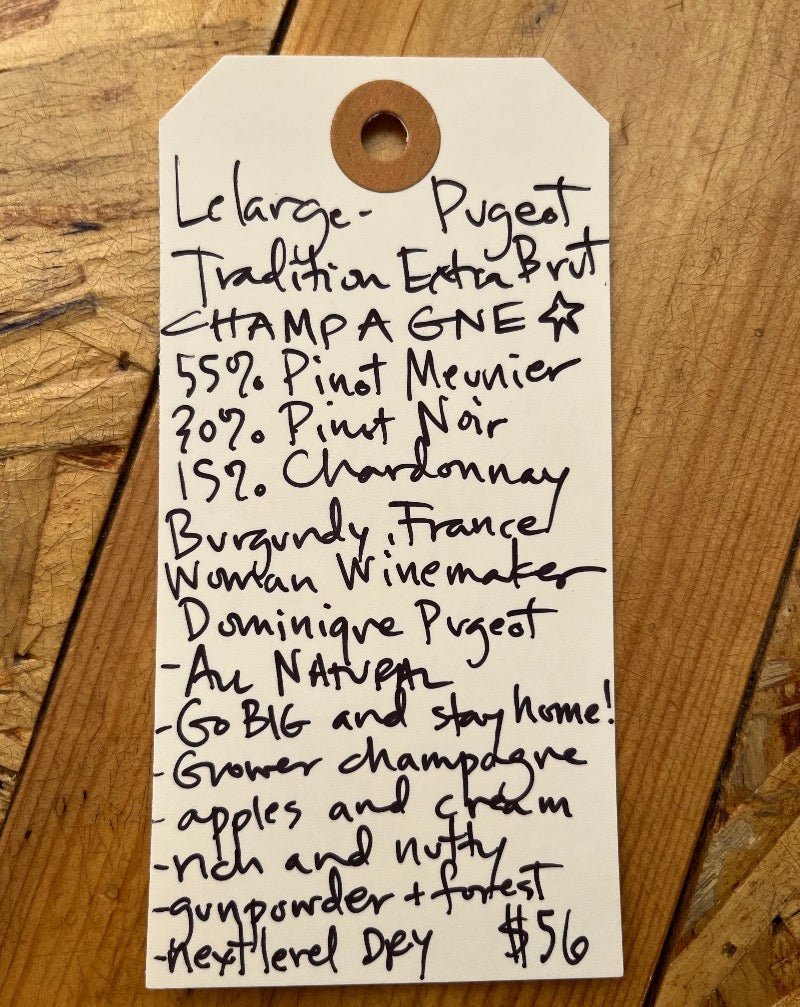 Lelarge- Pugeot
Tradition Extra Brut
CHAMPAGNE ☆
55% Pinot Meunier
30% Pinot Noir
15% Chardonnay
Burgundy, France
Woman Winemaker
Dominique Pugeot
-All NATURAL
-Go BIG and stay home!
-Grower champagne
-apples and cream
-rich and nutty
-gunpowder + forrest
-next level DRY $56